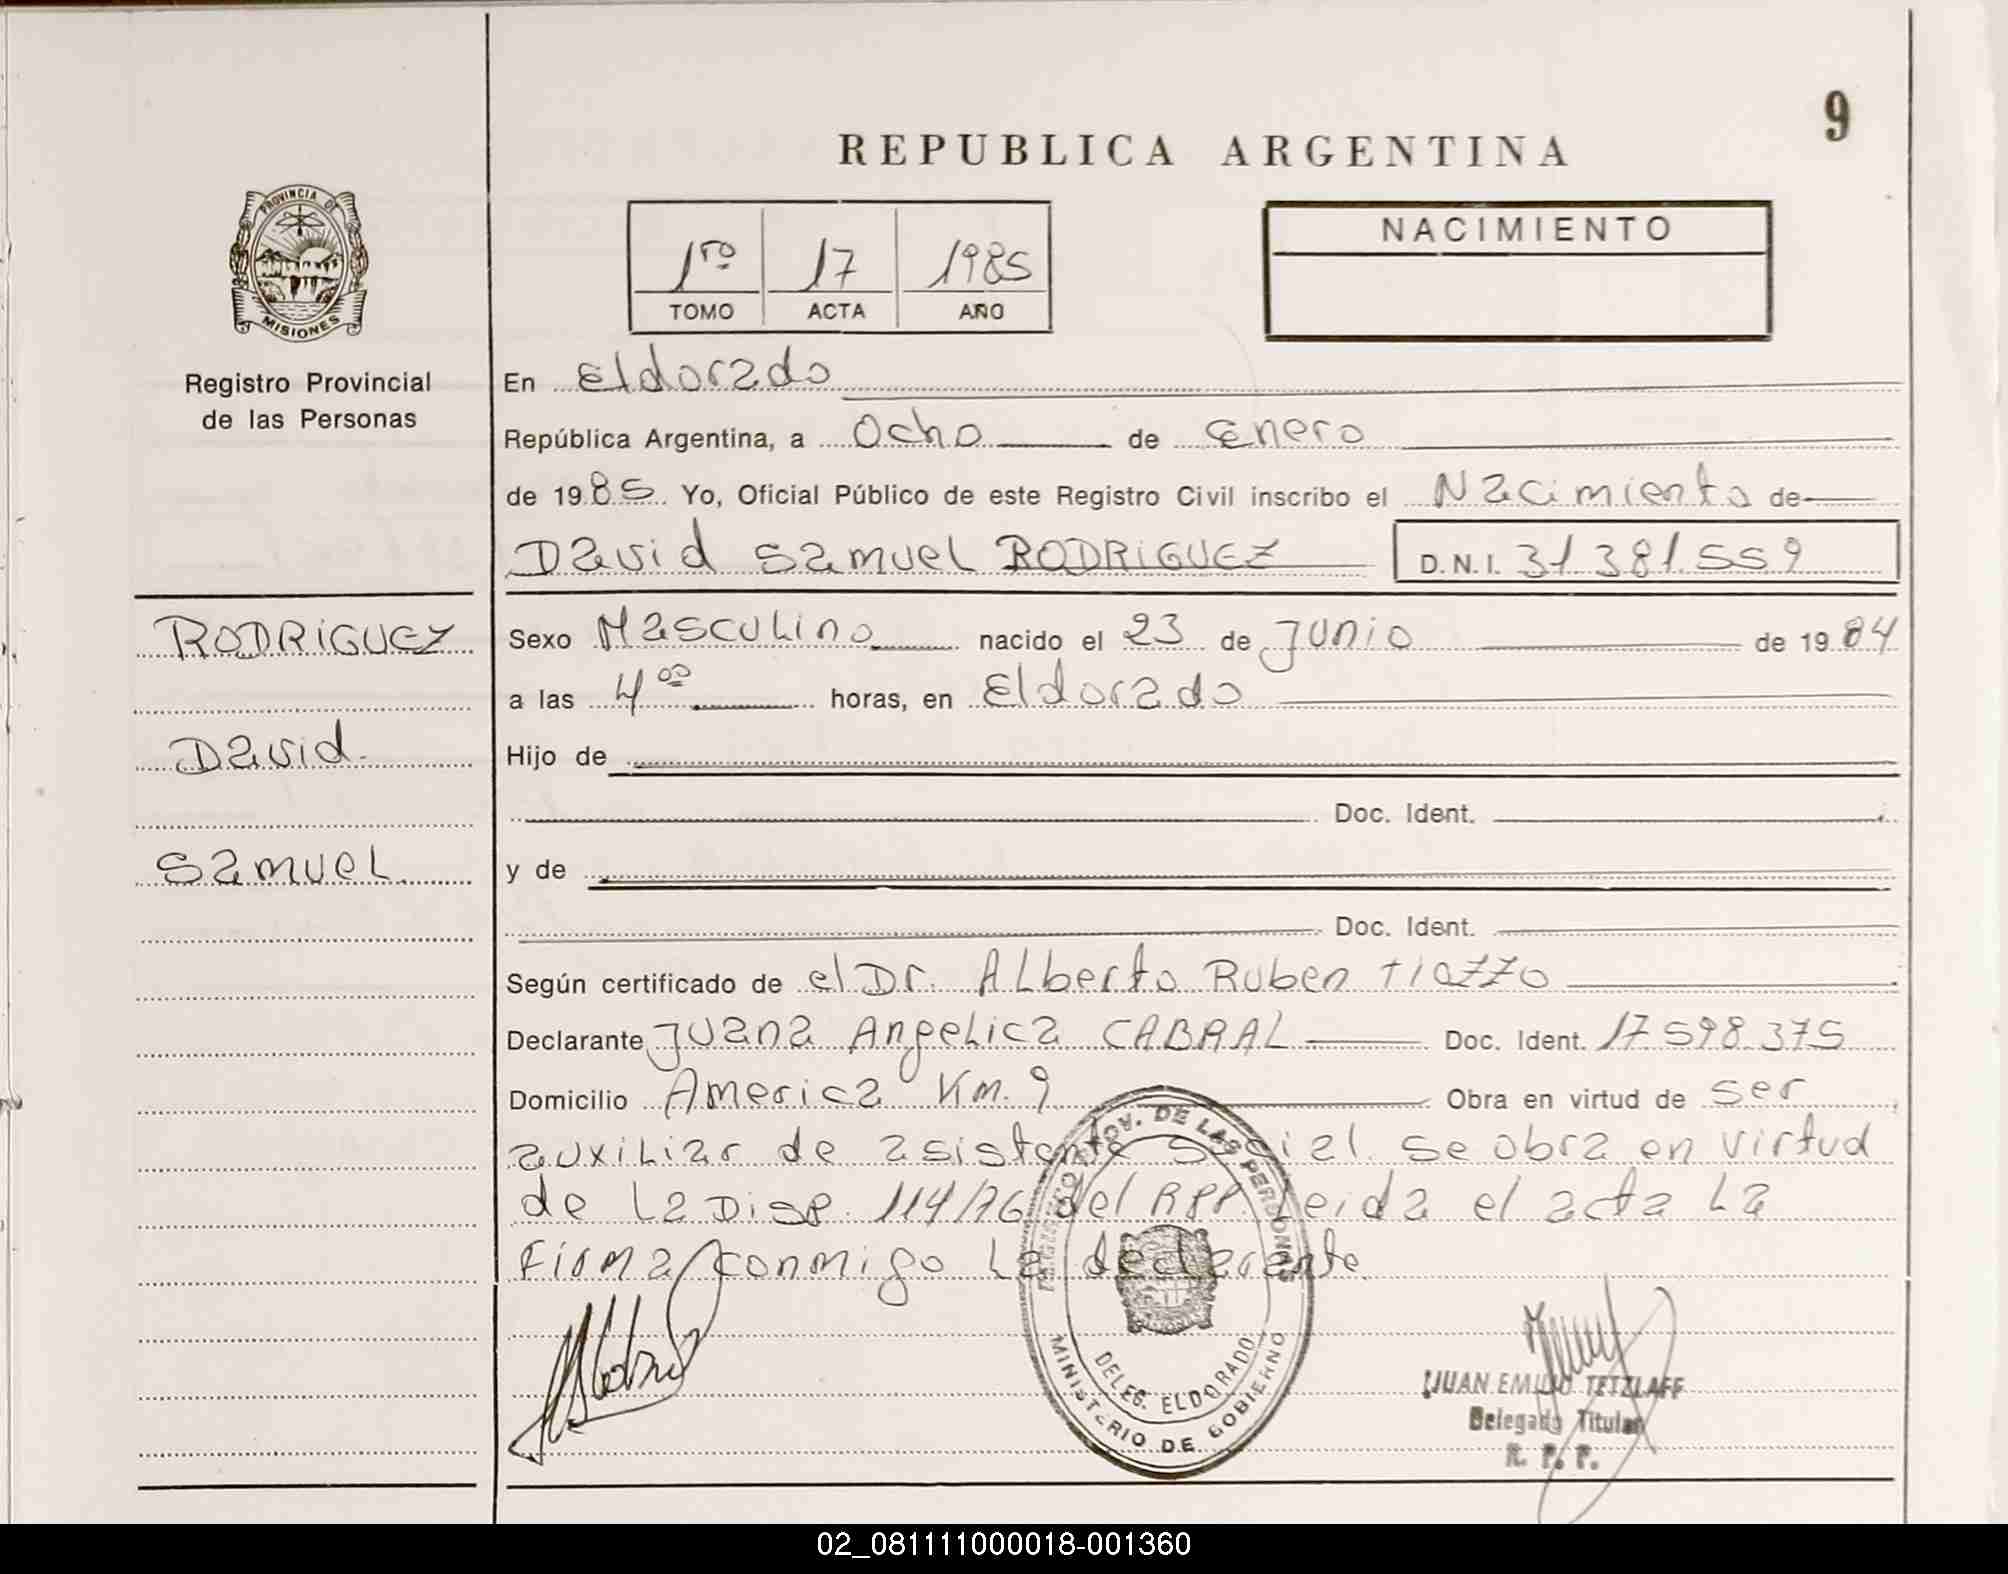 9
REPUBLICA ARGENTINA
PROVINCIA DE
MISIONES
Registro Provincial
de las Personas
1ro 17 1985
TOMO ACTA AÑO
NACIMIENTO
En Eldorado
República Argentina, a Ocho de Enero
de 1985 Yo, Oficial Público de este Registro Civil inscribo el Nacimiento de
David Samuel RODRIGUEZ D.N.I. 31.381.559
RODRIGUEZ
David
Samuel
Sexo Masculino nacido el 23 de Junio de 1984
a las 4 00 horas, en Eldorado
Hijo de
Doc. Ident.
y de
Doc. Ident.
Según certificado de el Dr. Alberto Ruben
Declarante Juana Angelica CABRAL Doc. Ident. 17.598.375
Domicilio America Km. 9 Obra en virtud de ser
auxiliar de asistente social. Se obra en virtud
de la Disp. 114/76 del RPP. Leida el acta La
Firma conmigo La declarante
REGISTRO PROV. DE LAS PERSONAS
DELEG. ELDORADO
MINISTERIO DE GOBIERNO
JUAN EMILIO TETZLAFF
Delegado Titular
R. P. P.
02_081111000018-001360